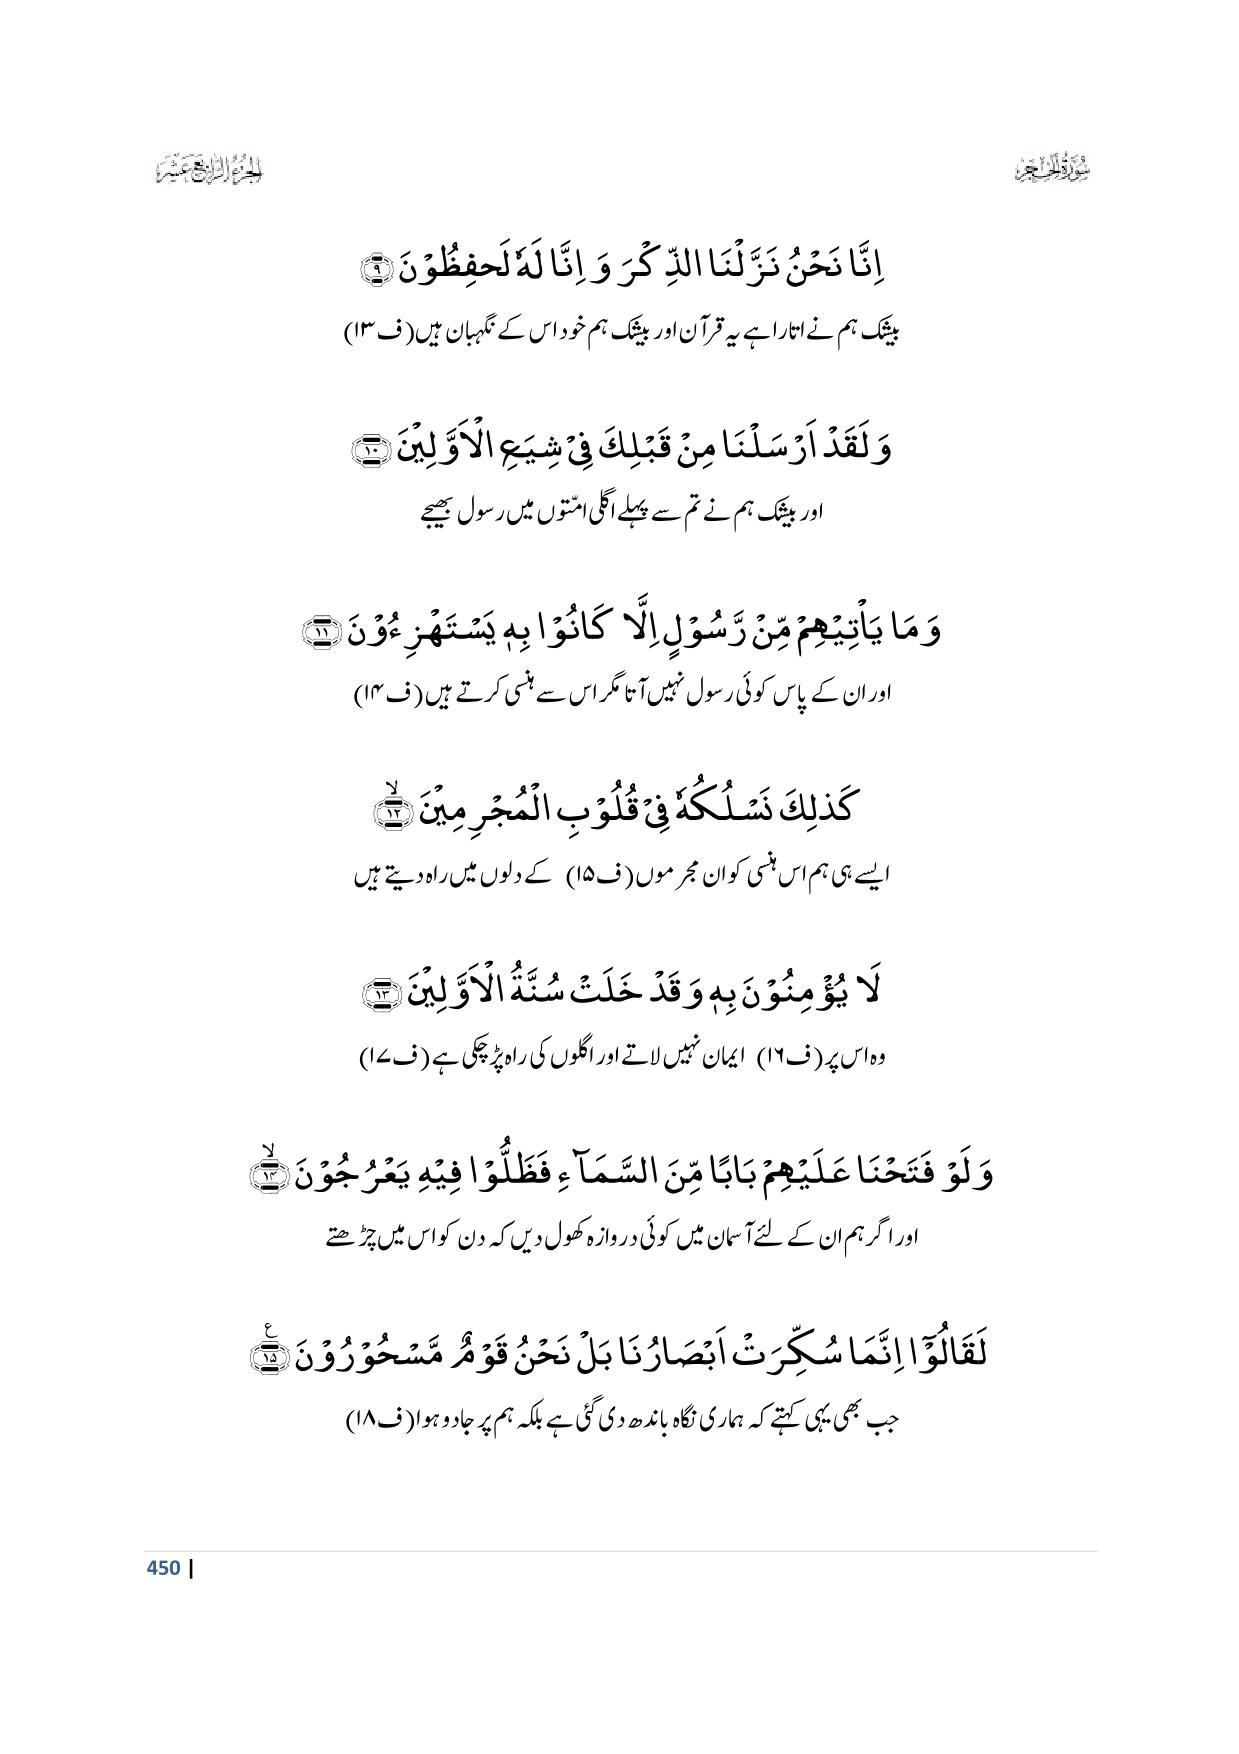 سُوْرَةُ الْحِجْرِ
الجزء الرابع عشر
اِنَّا نَحْنُ نَزَّلْنَا الذِّكْرَ وَ اِنَّا لَهٗ لَحٰفِظُوْنَ ﴿۹﴾
بیشک ہم نے اتارا ہے یہ قرآن اور بیشک ہم خود اس کے نگہبان ہیں (ف۱۳)
وَ لَقَدْ اَرْسَلْنَا مِنْ قَبْلِكَ فِیْ شِیَعِ الْاَوَّلِیْنَ ﴿۱۰﴾
اور بیشک ہم نے تم سے پہلے اگلی امتّوں میں رسول بھیجے
وَ مَا یَاْتِیْهِمْ مِّنْ رَّسُوْلٍ اِلَّا كَانُوْا بِهٖ یَسْتَهْزِءُوْنَ ﴿۱۱﴾
اور ان کے پاس کوئی رسول نہیں آتا مگر اس سے ہنسی کرتے ہیں (ف۱۴)
كَذٰلِكَ نَسْلُكُهٗ فِیْ قُلُوْبِ الْمُجْرِمِیْنَ ﴿ۙ۱۲﴾
ایسے ہی ہم اس ہنسی کو ان مجرموں (ف۱۵) کے دلوں میں راہ دیتے ہیں
لَا یُؤْمِنُوْنَ بِهٖ وَ قَدْ خَلَتْ سُنَّةُ الْاَوَّلِیْنَ ﴿۱۳﴾
وہ اس پر (ف۱۶) ایمان نہیں لاتے اور اگلوں کی راہ پڑ چکی ہے (ف۱۷)
وَ لَوْ فَتَحْنَا عَلَیْهِمْ بَابًا مِّنَ السَّمَآءِ فَظَلُّوْا فِیْهِ یَعْرُجُوْنَ ﴿ۙ۱۴﴾
اور اگر ہم ان کے لئے آسمان میں کوئی دروازہ کھول دیں کہ دن کو اس میں چڑھتے
لَقَالُوْۤا اِنَّمَا سُكِّرَتْ اَبْصَارُنَا بَلْ نَحْنُ قَوْمٌ مَّسْحُوْرُوْنَ ﴿۱۵﴾ ع
جب بھی یہی کہتے کہ ہماری نگاہ باندھ دی گئی ہے بلکہ ہم پر جادو ہوا (ف۱۸)
450 |